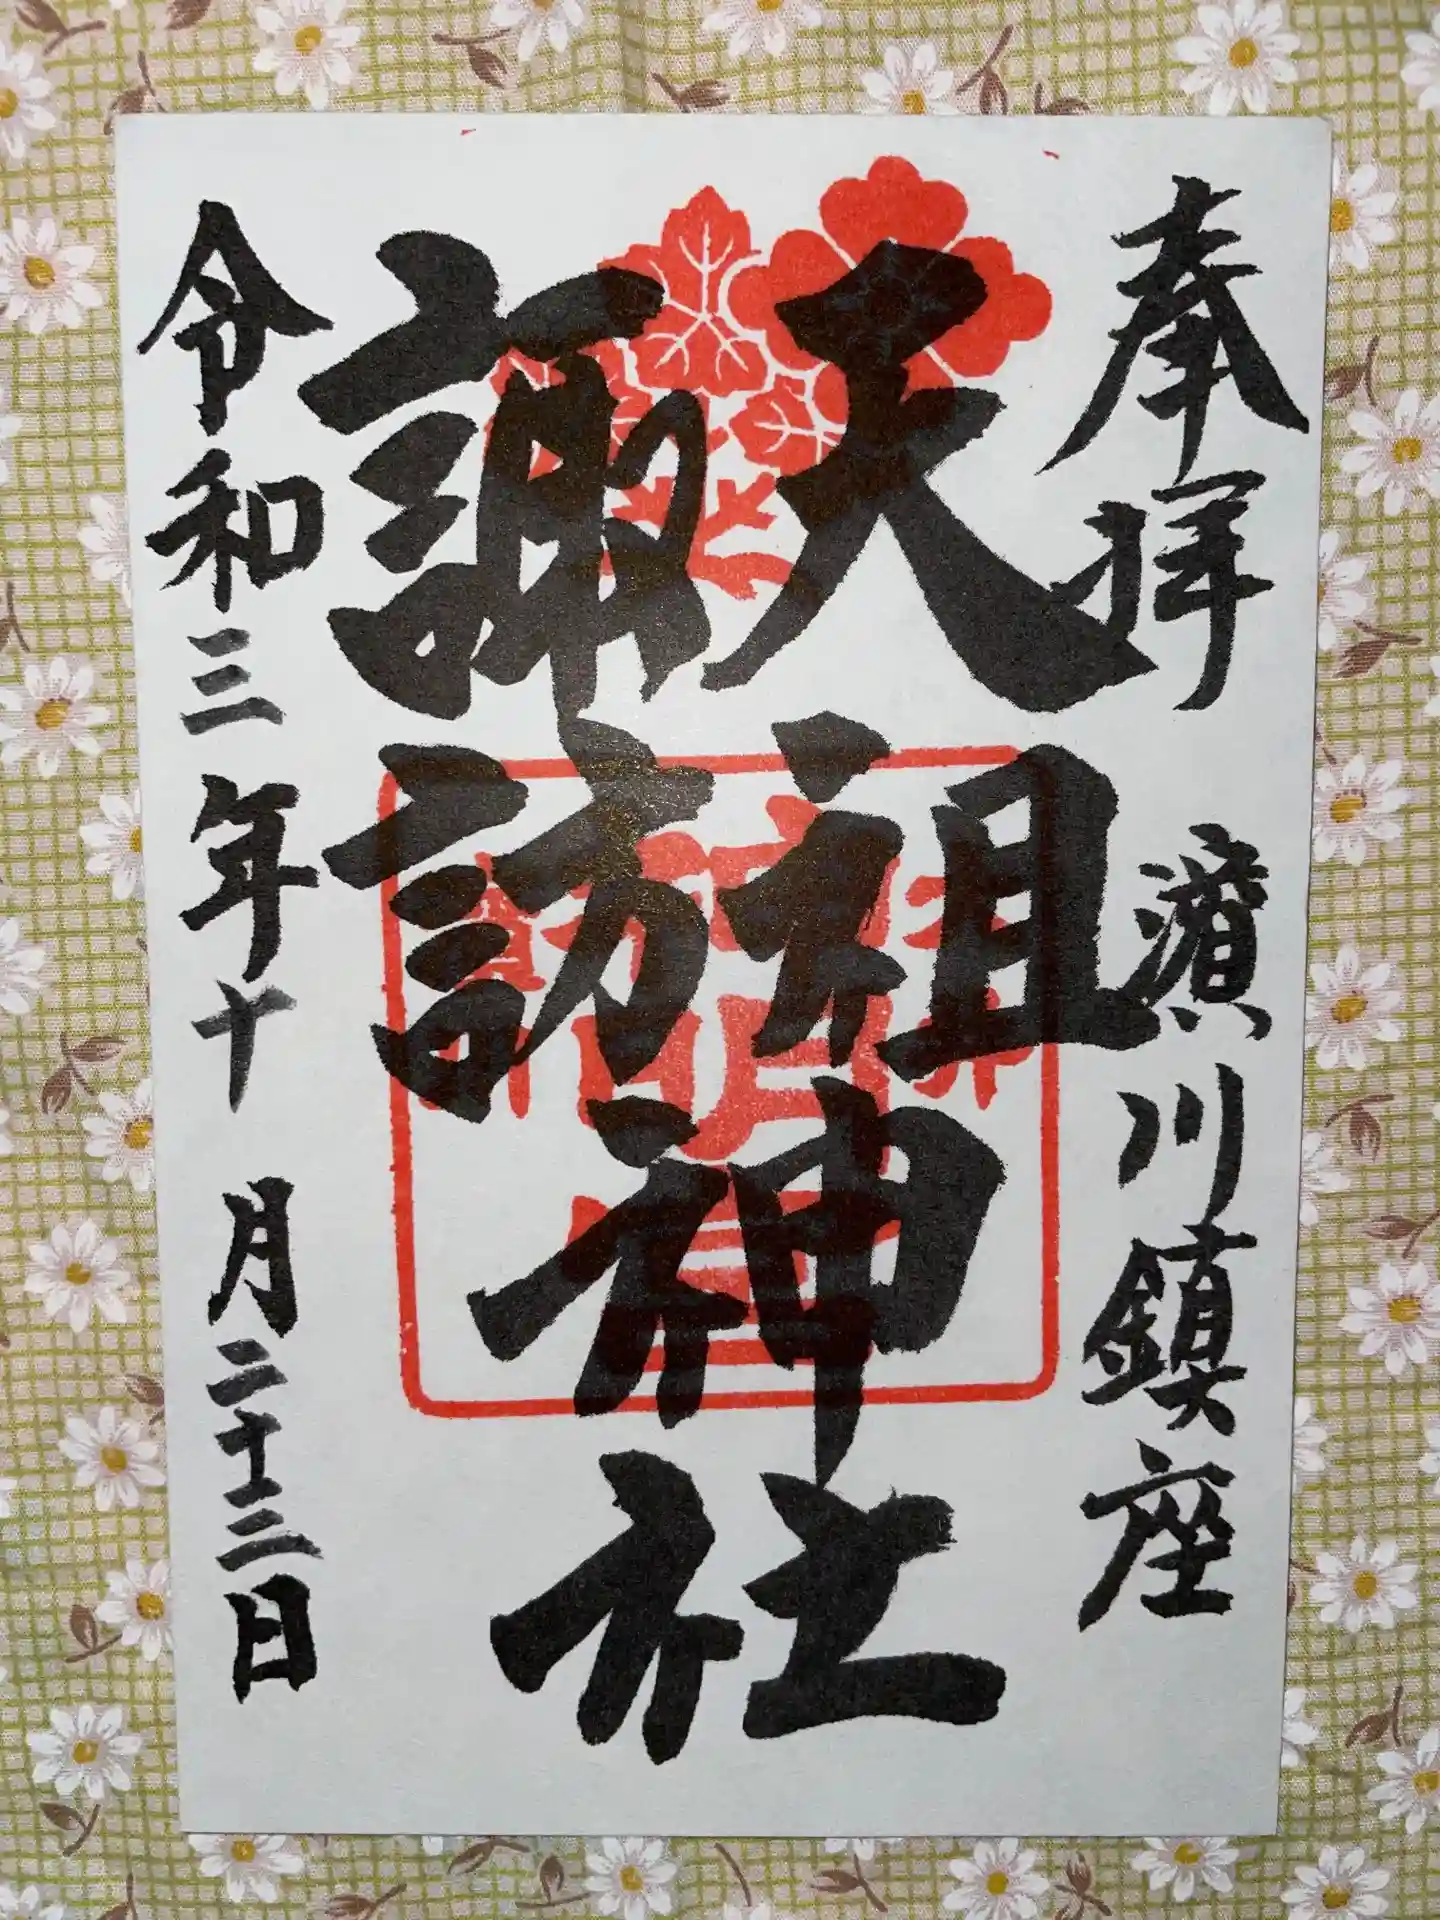 奉拝 濱川鎮座
天祖
諏訪
神社
令和三年十月二十三日